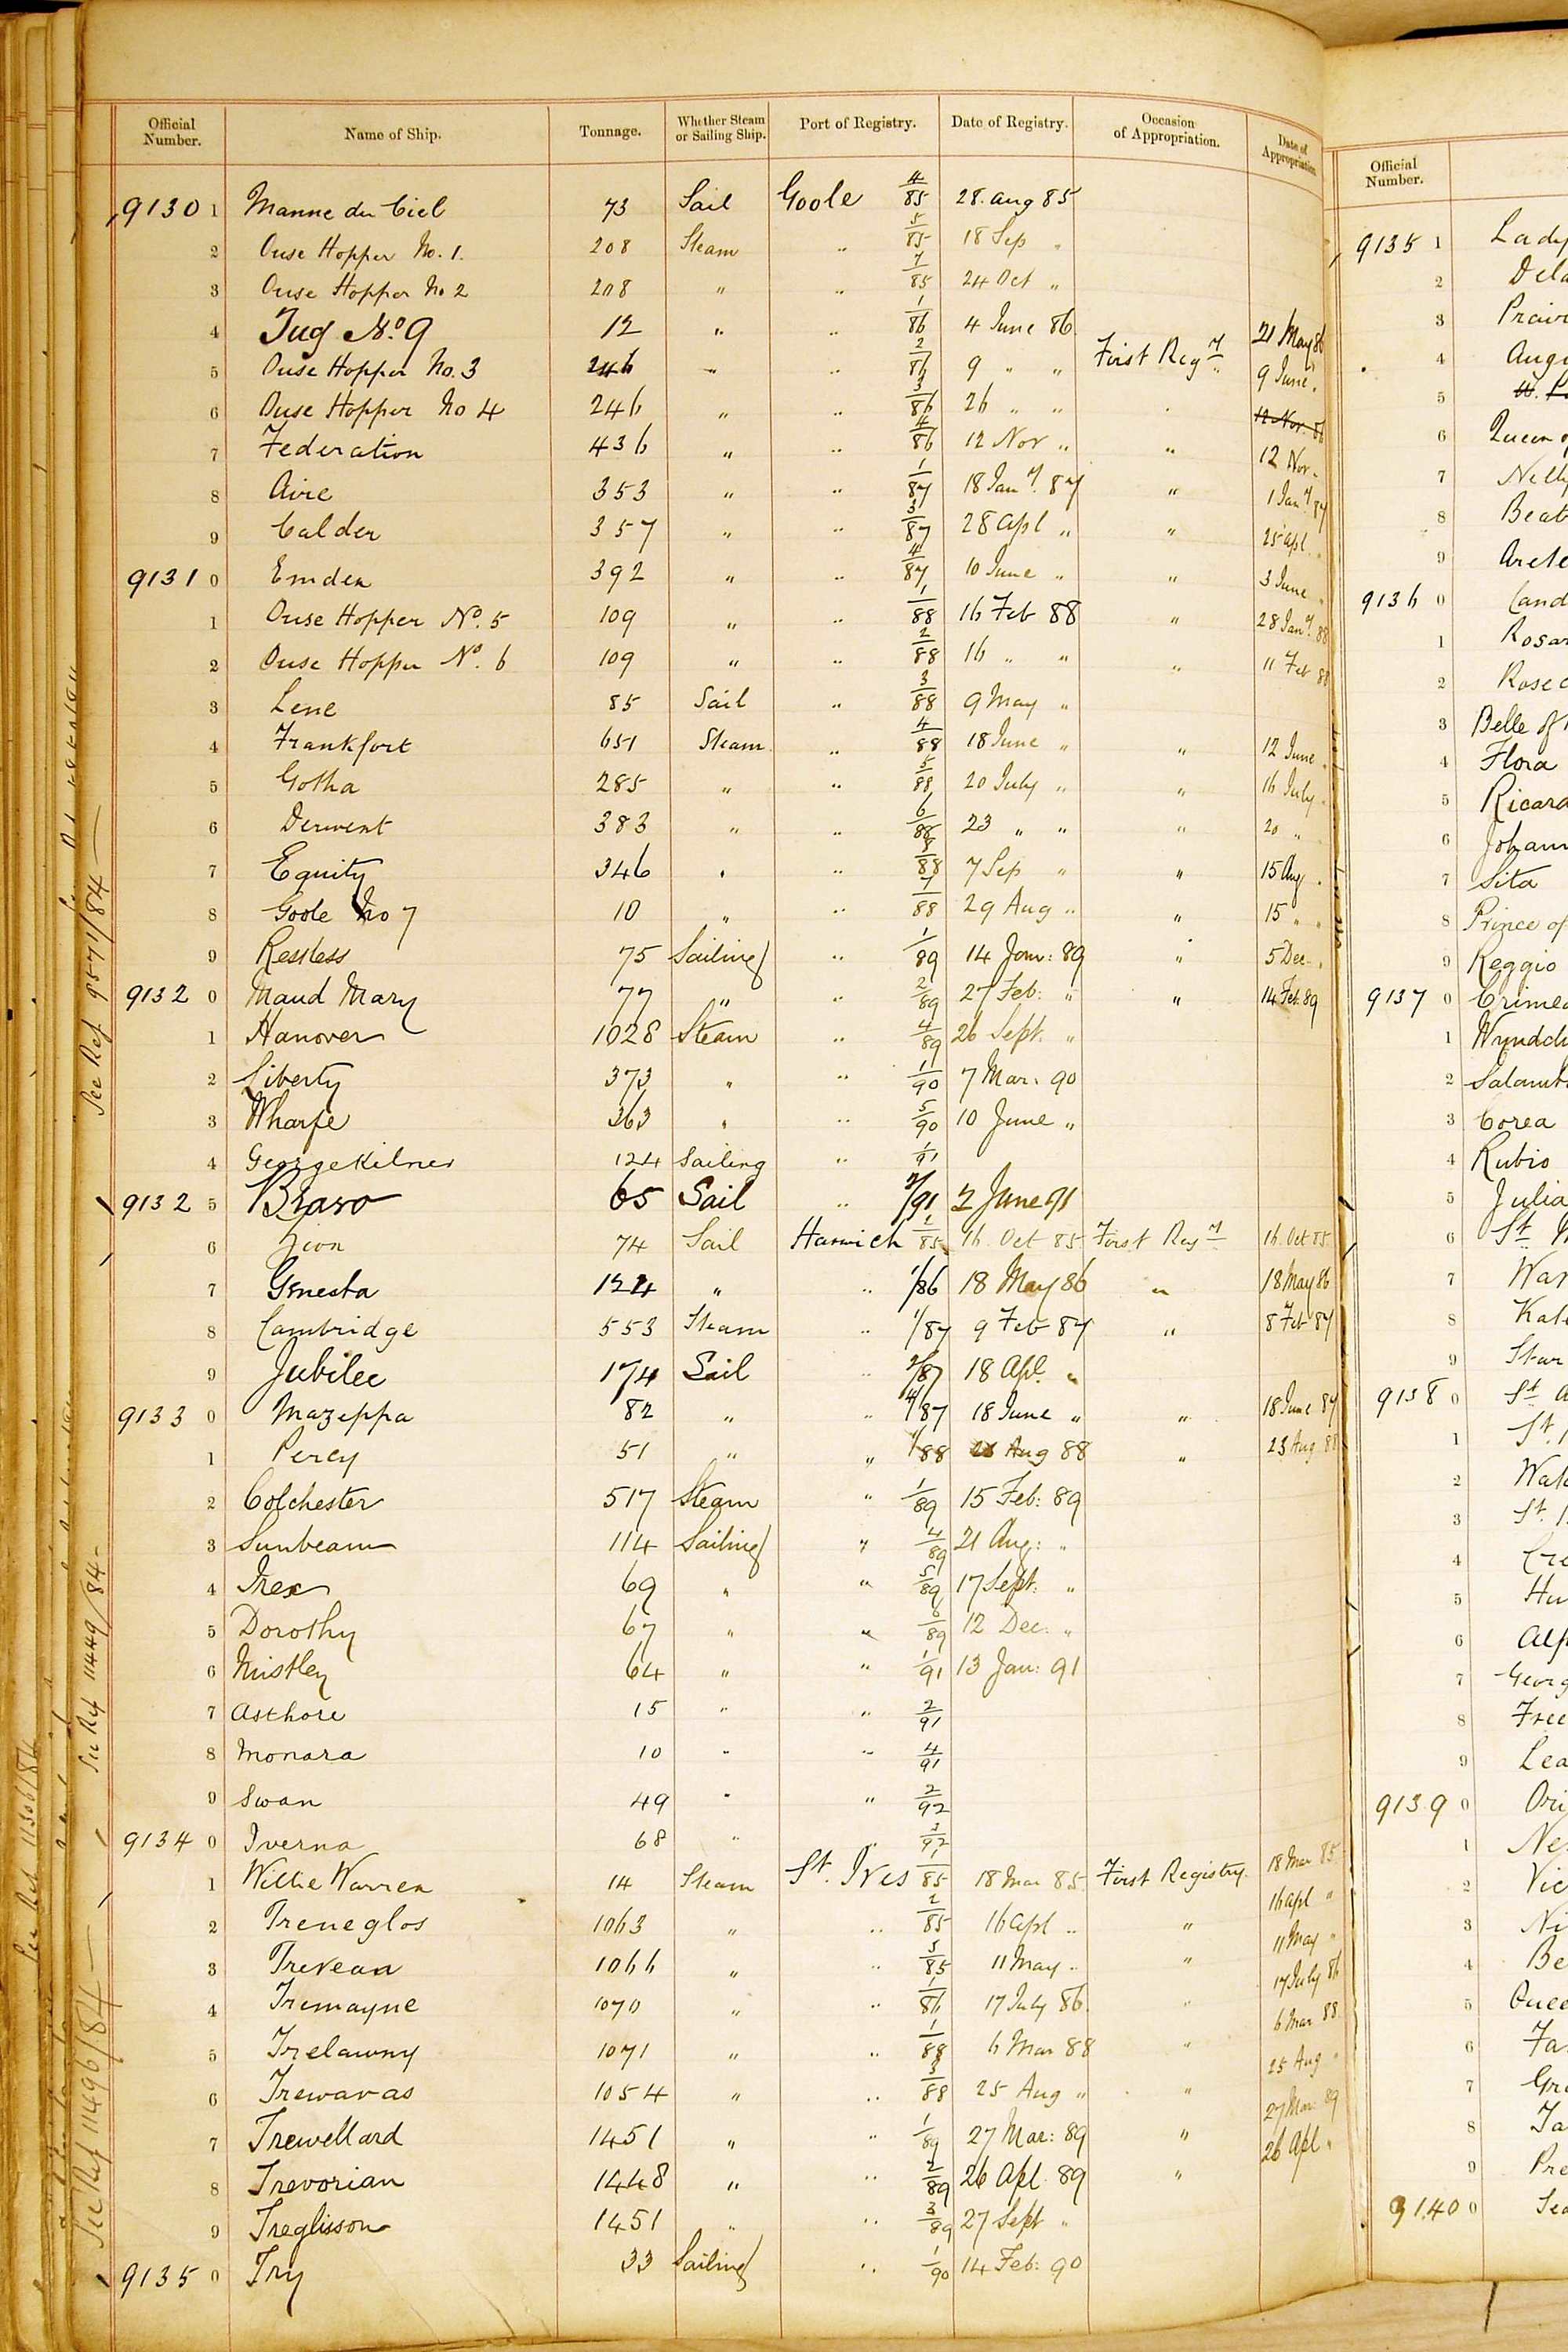 Official Number. Name of Ship. Tonnage. Whether Steam or Sailing Ship. Port of Registry. Date of Registry. Occasion of Appropriation. Date of Appropriation
9130 1 Manne du Ciel 73 Sail Goole 4/85 28. Aug 85
2 Ouse Hopper No. 1. 208 Steam " 5/85 18 Sep "
3 Ouse Hopper No 2 208 " " 7/85 24 Oct "
4 Tug No. 9 12 " " 1/86 4 June 86 21 May 86
5 Ouse Hopper No. 3 246 " " 2/86 9 " " First Regy " 9 June "
6 Ouse Hopper No 4 246 " " 3/86 26 " " 12 Nov. 86
7 Federation 436 " " 4/86 12 Nov " " 12 Nov "
8 Aire 353 " " 1/87 18 Jany. 87 " 1 Jany 87
9 Calder 357 " " 3/87 28 Apl " " 25 Apl "
9131 0 Emden 392 " " 4/87 10 June " " 3 June "
1 Ouse Hopper No. 5 109 " " 1/88 16 Feb 88 " 28 Jany. 88
2 Ouse Hopper No. 6 109 " " 2/88 16 " " " 11 Feb 88
3 Lene 85 Sail " 3/88 9 May "
4 Frankfort 651 Steam " 4/88 18 June " " 12 June "
5 Gotha 285 " " 5/88 20 July " " 16 July "
6 Derwent 383 " " 6/88 23 " " " 20 "
7 Equity 346 " " 8/88 7 Sep " " 15 Aug "
8 Goole No 7 10 " " 7/88 29 Aug " " 15 " "
9 Restless 75 Sailing " 1/89 14 Jan: 89 " 5 Dec "
9132 0 Maud Mary 77 " " 2/89 27 Feb: " " 14 Feb. 89
1 Hanover 1028 Steam " 4/89 26 Sept. "
2 Liberty 373 " " 11/90 7 Mar: 90
3 Wharfe 363 " " 5/90 10 June "
4 George Kilner 124 Sailing " 1/91
9132 5 Bravo 65 Sail " 2/91 2 June 91
6 Zion 74 Sail Harwich 2/85 16. Oct 85 First Regy 16. Oct 85
7 Genesta 124 " " 1/86 18 May 86 " 18 May 86
8 Cambridge 553 Steam " 1/87 9 Feb 87 " 8 Feb 87
9 Jubilee 174 Sail " 2/87 18 Apl. "
9133 0 Mazeppa 82 " " 4/87 18 June " " 18 June 87
1 Percy 51 " " 1/88 Aug 88 " 23 Aug 88
2 Colchester 517 Steam " 1/89 15 Feb: 89
3 Sunbeam 114 Sailing " 4/89 21 Aug: "
4 Irex 69 " " 5/89 17 Sept: "
5 Dorothy 67 " " 6/89 12 Dec: "
6 Mistley 64 " " 1/91 13 Jan: 91
7 Asthore 15 " " 2/91
8 Monara 10 " " 4/91
9 Swan 49 " " 2/92
9134 0 Iverna 68 " " 3/92
1 Willie Warren 14 Steam St. Ives 1/85 18 Mar 85 First Registry. 18 Mar 85
2 Treneglos 1063 " " 2/85 16 Apl " " 16 Apl "
3 Trevean 1066 " " 3/85 11 May " " 11 May "
4 Tremayne 1070 " " 1/86 17 July 86 " 17 July 86
5 Trelawny 1071 " " 1/88 6 Mar 88 " 6 Mar 88
6 Trewavas 1054 " " 3/88 25 Aug " " 25 Aug "
7 Trewellard 1451 " " 1/89 27 Mar: 89 " 27 Mar 89
8 Trevorian 1448 " " 2/89 26 Apl. 89 " 26 Apl "
9 Treglisson 1451 " " 3/89 27 Sept "
9135 0 Try 33 Sailing " 1/90 14 Feb: 90
See Ref 9571/84
See Ref 11449/84
See Ref 11496/84
See Ref 11306/84
Official Number.
9135 1 Lady
2 Dela
3 Prair
4 Augu
5
6 Queen of
7 Nelly
8 Beat
9 Arete
9136 0 Cand
1 Rosar
2 Rose
3 Belle of
4 Flora
5 Ricard
6 Johann
7 Sita
8 Prince of
9 Reggio
9137 0 Crimea
1 Wyndc
2 Salamb
3 Corea
4 Rubio
5 Julia
6 St.
7 War
8 Kate
9 Star
9138 0 St. A
1 St.
2 Wat
3 St.
4 Cre
5 Hu
6 Alf
7 Georg
8 Free
9 Lea
9139 0 Ori
1 Ne
2 Vic
3 Ni
4 Be
5 Quee
6 Fa
7 Gr
8 Ja
9 Pre
9140 0 Sea